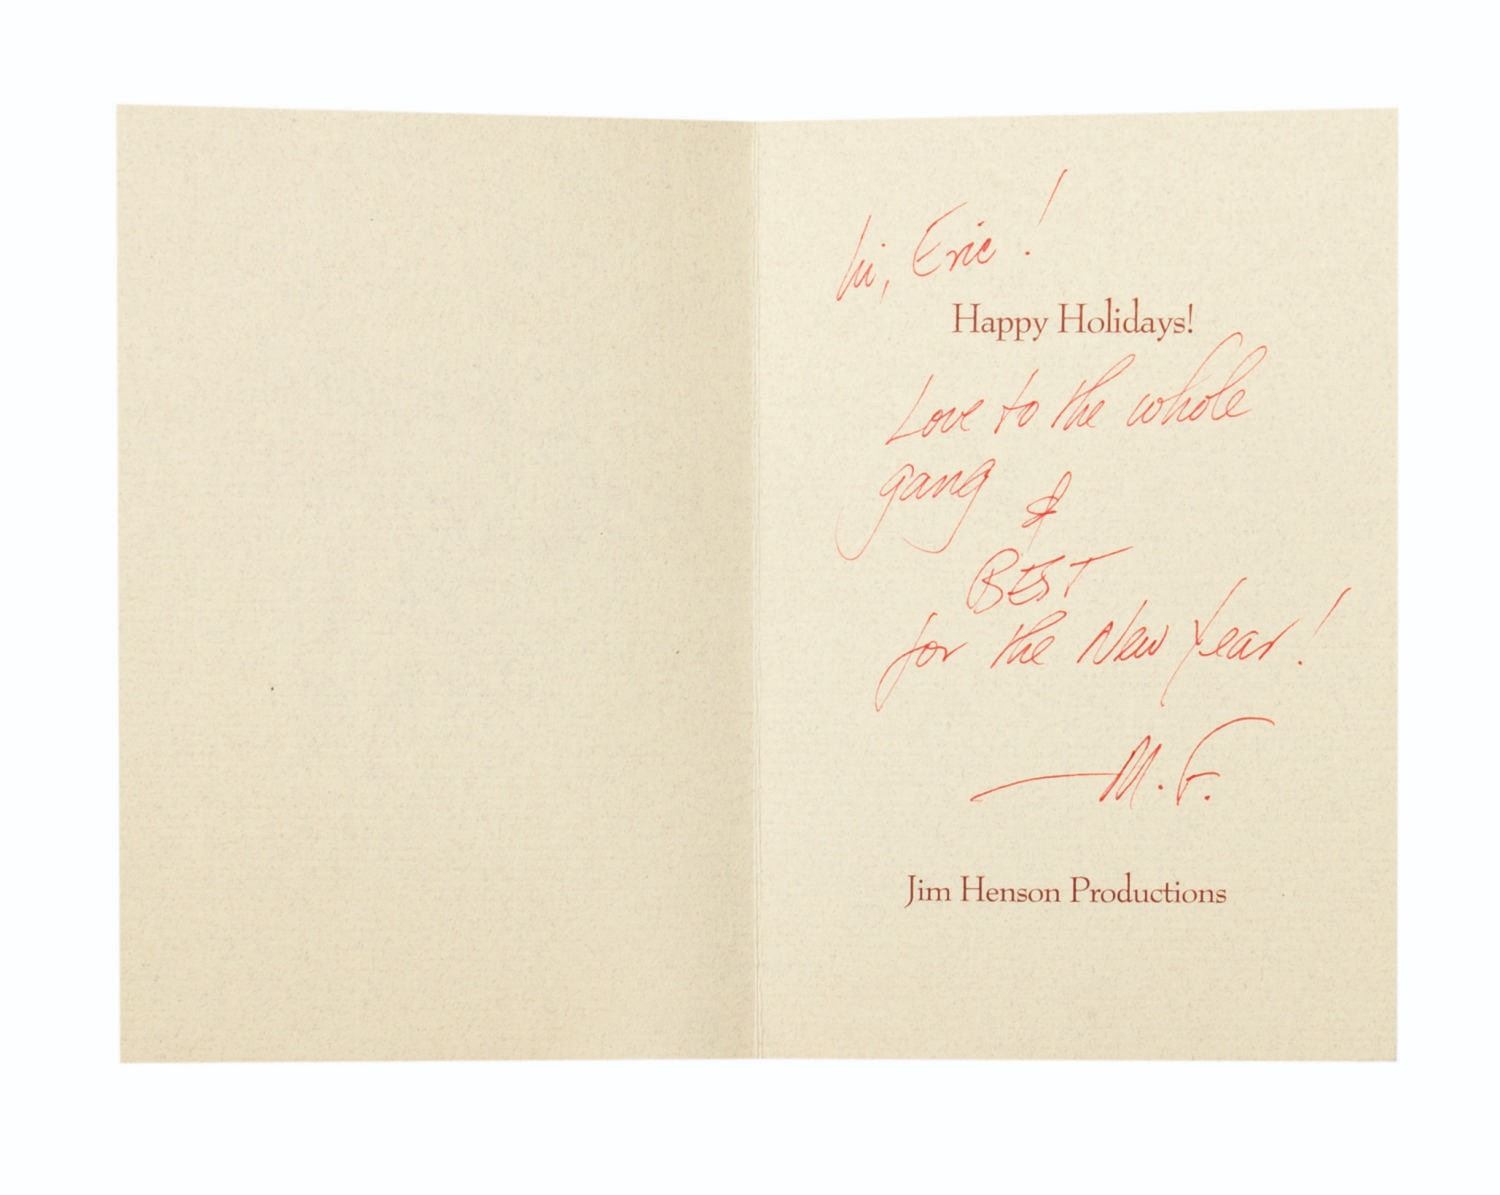 hi, Eric!
Happy Holidays!
Love to the whole
gang &
BEST
for the New Year!
—M.F.
Jim Henson Productions